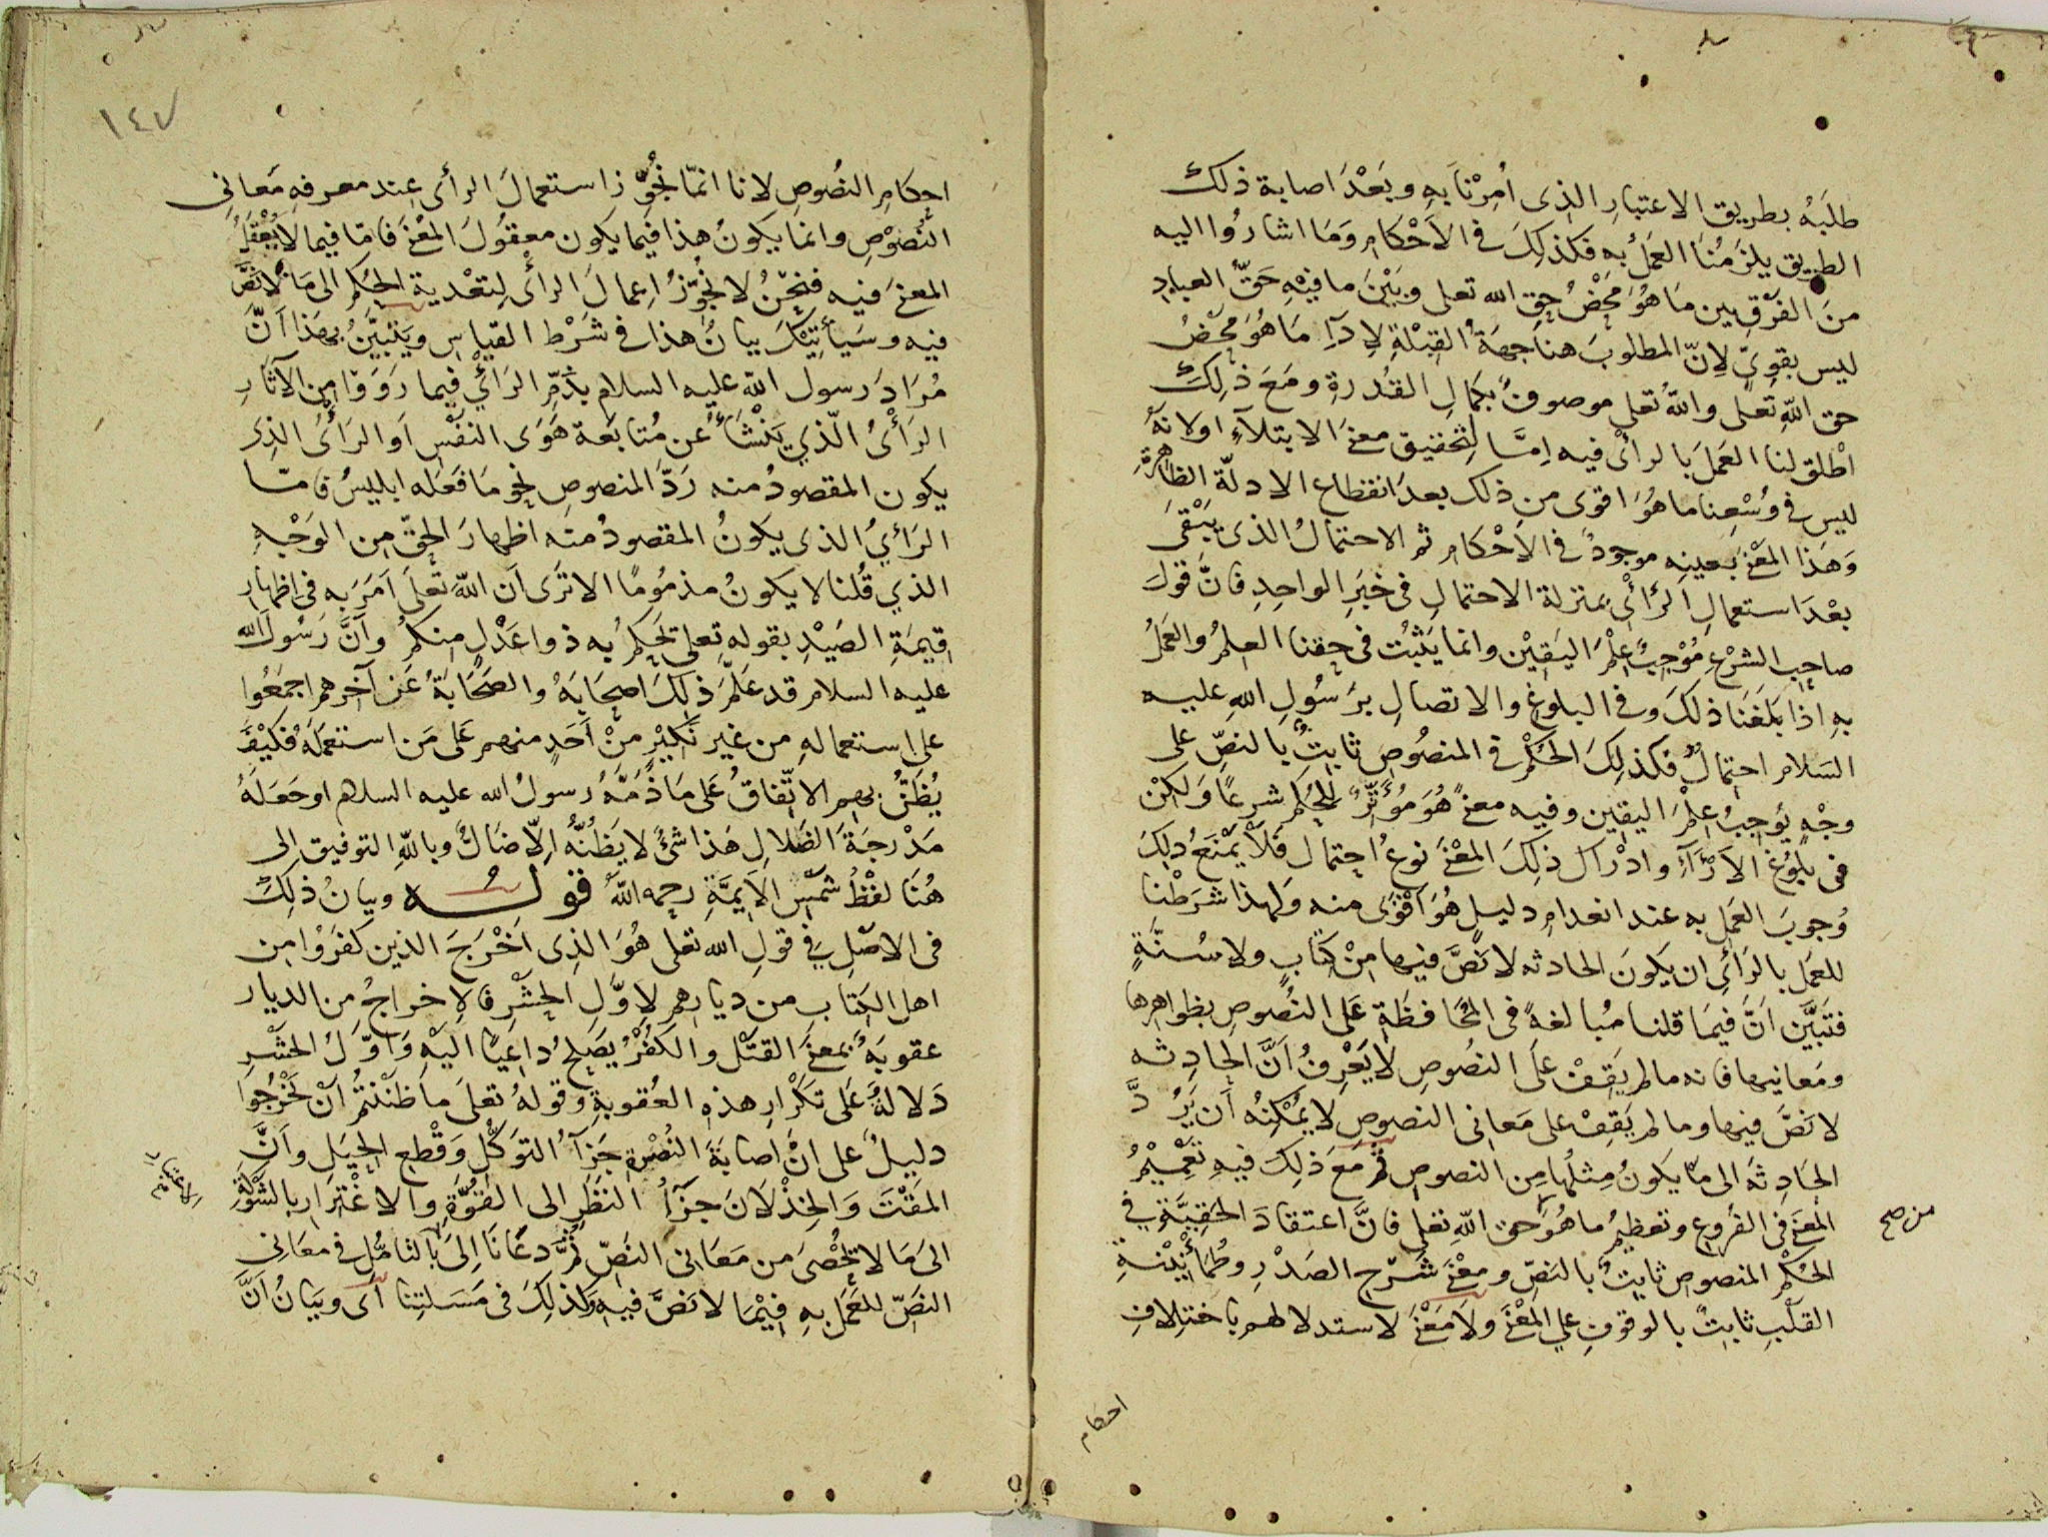 طلَبَهُ بطريق الاعتبارِ الذى اُمِرْنا بهِ وبَعْدَ اصابة ذلك
الطريق يلزَمُنَا العَمَلُ به فكذلِكَ فى الاَحْكامِ وَمَا اشارُوا اليه
منَ الفَرْقِ بين مَا هُوَ مَحْضُ حقِ الله تعلى وبَيْنَ ما فيْهِ حَقُّ العبادِ
ليس بقوىٍّ لِانّ المطلوبَ هنا جهَةُ القِبْلةِ لِادآءِ مَا هُوَ مَحْضُ
حق اللّهِ تَعلى واللّهُ تعلى موصوفٌ بكمالِ القُدرةِ ومَعَ ذلِكَ
اطْلق لنا العَمَلَ بالرأىْ فيه اِمَّا لِتحقيق معنَى الابتلآءِ اولانهُ
ليس فى وُسْعِنا ما هُوَ اقوى من ذلك بعدَ انقطاع الادلّة الظاهرةِ
وَهَذا المَعْنَى بعينِه موجودٌ فى الاَحْكامِ ثم الاحتمالُ الذى يَبْقىَ
بعْدَ استعمالِ الرَّاْىْ بمنزلة الاحتمالِ فى خبَرِ الواحِدِ فانَّ قولَ
صاحِب الشرْعِ مُوْجِبٌ عِلْمَ اليَقيْن وانما يَثبُت فى حقنا العِلمُ والعَمَلُ
بهِ اِذا بَلَغَنَا ذلكَ وفى البلوغِ والاتصالِ برَسُولِ اللهِ عليه
السَلام احتمالٌ فكذلِكَ الحُكْمُ فى المنصُوصِ ثابِتٌ بالنصِّ على
وجْهٍ يُوجِبُ عِلْمَ اليقين وفيه معنىً هُوَ مُؤثِّرٌ للحُكمِ شرعًا وَلكِنْ
فى بلُوُغ الآرَآءِ وادْراك ذلِكَ المعْنَى نوعُ احتمال فلاَ يمْنَعُ ذلِكَ
وُجوبَ العَمَلِ به عند انعدامِ دليلٍ هُوَ اَقْوَى منه ولهذا شرَطْنا
للعمَل بالرَّاْىِ ان يكونَ الحادثه لا نَصَّ فيها مِنْ كتابٍ ولا سُنَّةٍ
فتَبَيَّنَ اَنَّ فيمَا قلنا مُبالغةً فى المُحَافظَةِ عَلى النُصُوصِ بظواهِرِها
ومَعانيها فانه ما لم يَقِفْ عَلَى النصُوصِ لا يَعْرِفُ اَنَّ الحادِثه
لا نصَّ فيها وما لم يَقِفْ على مَعانى النصوص لا يُمْكِنُه أَن يَرُدَّ
الحَادِثَه الى مَا يكونُ مِثلُها مِن النصوصِ ثم مَعَ ذلِكَ فيهِ تَعْمِيْمُ
المَعنَى فى الفروع وتعظيمُ ما هُوَ حق اللّهِ تعلى فانَّ اعتقادَ الحَقِيَّةِ فى
من صح
الحُكْمِ المنصوصِ ثابِتٌ بالنَصّ ومَعْنَى شَرْحِ الصَدْرِ وطُمَأنينةِ
القلْبِ ثابِتٌ بالوقوفِ على المَعْنَى ولا مَعْنَى لاستدلالهم باختِلافِ
احكام
١٤٧
احكامِ النصُوصِ لانا انمّا نُجوّز استعمالَ الرأى عِند معرفهِ مَعانى
النُصُوْصِ وانما يكونُ هذا فيما يكون معقُولَ المَعْنَى فامّا فيما لا يُعْقلُ
المعنى فيه فنحْنُ لا نجُوِّزُ اعمالَ الرأىْ لِتعْدية الحُكمِ الى مَا لا نصَّ
فيه وسَيأتيْكَ بيانُ هذا فى شرْط القياسِ ويَتبيَّنُ بهَذا اَنَّ
مُرَادَ رسول اللّه عليه السلام بذمِّ الرَأْىِ فيما رَوَوْا مِن الآثارِ
الرَأْىُ الّذي يَنْشَأُ عن مُتابعَة هَوَى النفْس اَو الرَأْىُ الذى
يكون المقصودُ منه رَدَّ المنصوصِ نحو مَا فعَله ابليسُ فامّا
الرَأْىُ الذى يكونُ المقصودُ منه اظهارَ الحَقّ مِن الوَجْهِ
الذي قُلنا لا يكونُ مذمُومًا الا ترَى اَن اللّه تعلَى اَمَرَ به فى اظهارِ
قيمَةِ الصَيْدِ بقولِه تعلى يحكمُ به ذوا عَدْلٍ منكمُ وأنَّ رَسُولَ الله
عليه السلام قد عَلَّمَ ذلِكَ اصحَابَهُ والصحَابَةُ عَن آخرهم اجمَعُوا
على استعمالهِ من غيْر نَكيْرٍ منْ اَحَدٍ منهم عَلى مَن استعمَلهُ فكيْفَ
يُظَنُّ بهم الاتّفاقُ عَلى مَا ذَمَّهُ رَسولُ الله عليه السلام اوجَعَلهُ
مَدْرجَةَ الضَلالِ هَذا شئ لا يَظنُّهُ اِلّا ضَالٌ وباللّهِ التوفيق الى
هُنَا لفْظُ شمْس الايمَّةِ رحمه اللّهُ قولُه وبيانُ ذلِكَ
فى الاصْلِ فى قولِ الله تعلى هُوَ الذِى اَخْرَجَ الذين كفَرُوا مِن
اهل الكتاب من ديارهم لاوَّلِ الحشْرِ فالاخراجُ من الديار
عقوبَةٌ بمعنَى القتْل والكفْرُ يصْلحُ داعيًا اليْهِ وَاَوّلُ الحشْرِ
دَلالةٌ عَلى تكْرارِ هذِهِ العُقوبةِ وَقولهُ تعلَى ما ظنْنْتُمْ اَنْ يَخْرُجوا
دليلٌ على انَّ اصابَةَ النُصْرةِ جَزآءُ التوَكّلِ وَقْطع الحِيَلِ واَنَّ
المَقْتَ وَالخِذْلَانَ جزَآءُ النظَرِ الى القُوّةِ والاغْتِرارِ بالشَوْكَةِ
الىَ مَا لا يُحْصَى من مَعَانى النَصِّ ثُمَّ دَعَانَا اِلىَ بالتأمُّل فى معَانِى
النَصِّ للعَمَل بهِ فيْمَا لا نَصَّ فيهِ وَكذلِكَ فى مَسَلتِنا اَى وبَيَانُ اَنَّ